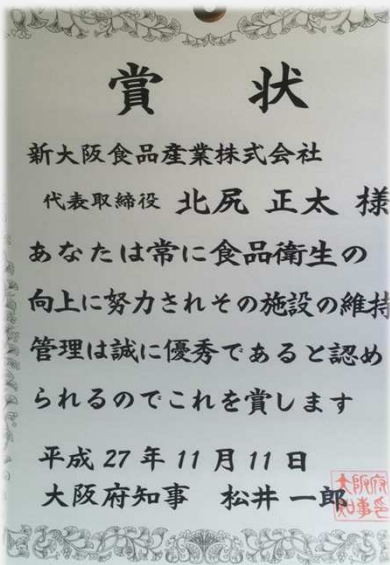 賞状
新大阪食品産業株式会社
代表取締役 北尻 正太 様
あなたは常に食品衛生の
向上に努力されその施設の維持
管理は誠に優秀であると認め
られるのでこれを賞します
平成27年11月11日
大阪府知事 松井一郎
大阪府
知事之印